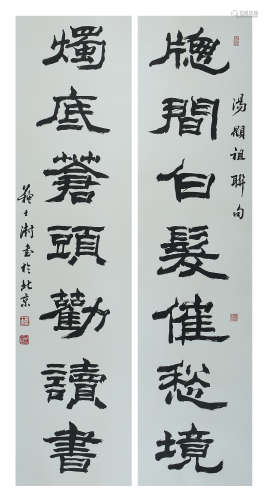 湯顯祖聯句
牕間白髮催愁境
燭底蒼頭勸讀書
蘇士澍書於北京